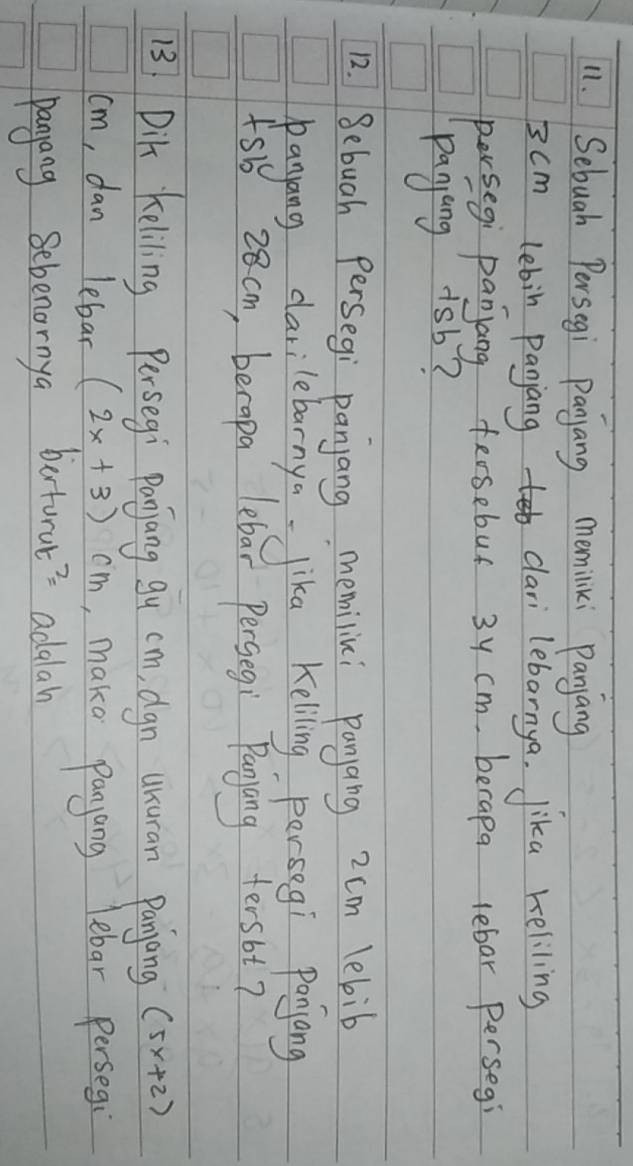 11. Sebuah Persegi Panjang memiliki Panjang
3cm lebih panjang dari lebarnya. Jika Keliling
persegi panjang tersebut 34 cm. berapa lebar Persegi
Panjang tsb?
12. Sebuah Persegi panjang memiliki panjang 2cm lebib
panjang dari lebarnya. Jika Keliling persegi Panjang
tsb 28cm, berapa lebar Persegi Panjang tersbt?
13. Dik Keliling Persegi Panjang 94 cm, dgn ukuran Panjang (5x+2)
cm, dan lebar (2x+3) cm, maka panjang lebar Persegi
panjang Sebenarnya berturut² = adalah